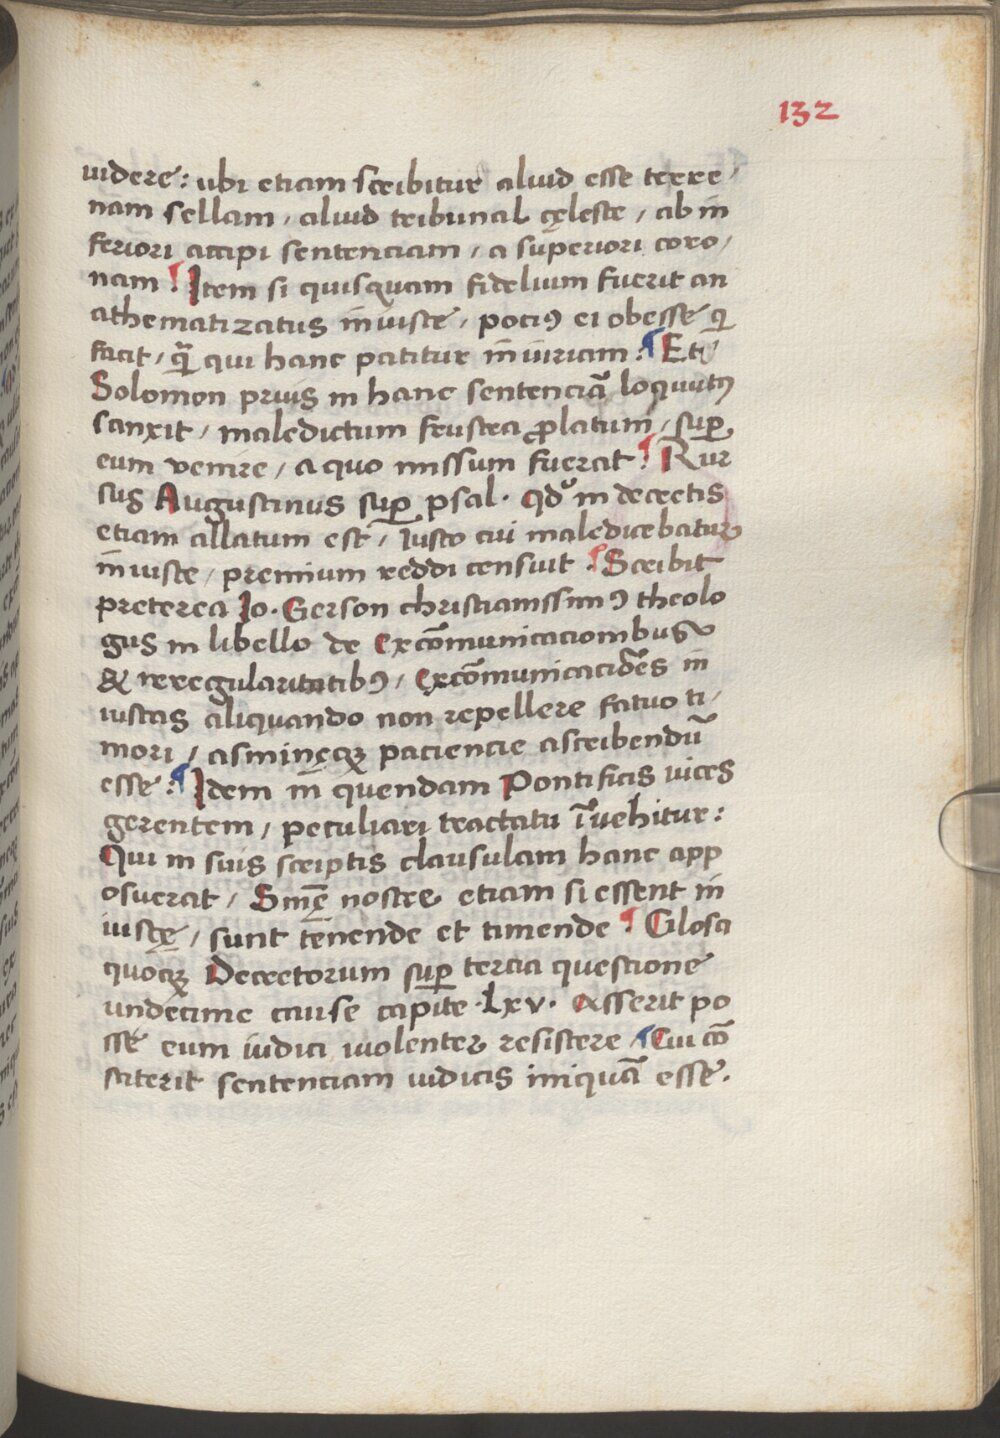 132
uidere: ubi etiam scribitur aliud esse terre
nam sellam, aliud tribunal cęleste, ab in
feriori accipi sentenciam, a superiori coro,
nam ¶ Item si quisquam fidelium fuerit an
athematizatus iniuste, pociꝰ ei obesse qͥ
facit, qᷓ qui hanc patitur iniuriam: ¶ Et
Solomon prius in hanc sentenciā loquutꝰ
sanxit, maledictum frustra ꝓlatum, suꝑ
eum venire, a quo missum fuerat ¶ Rur
sus Augustinus suꝑ psal. qdͦ in decretis
etiam allatum est, Iusto cui maledicebatur
iniuste, premium reddi censuit ¶ Scribit
preterea Io. Gerson christianissimꝰ theolo
gus in libello de excōmunicacionibus
& irregularitatibꝰ, excōmunicaciōes in
iustas aliquando non repellere fatuo ti,
mori, asininęqꝫ paciencie ascribendū
esse: ¶ Idem in quendam Pontificis vices
gerentem, peculiari tractatu īuehitur:
Qui in suis scriptis clausulam hanc app
osuerat, Snīę nostre etiam si essent in
iustę, sunt tenende et timende ¶ Glosa
quoqꝫ Decretorum suꝑ tercia questione
undecime cause capite .Lxv. Asserit po
sse eum iudici uiolenter resistere, ¶ Cui cō
stiterit sentenciam iudicis iniquā esse.